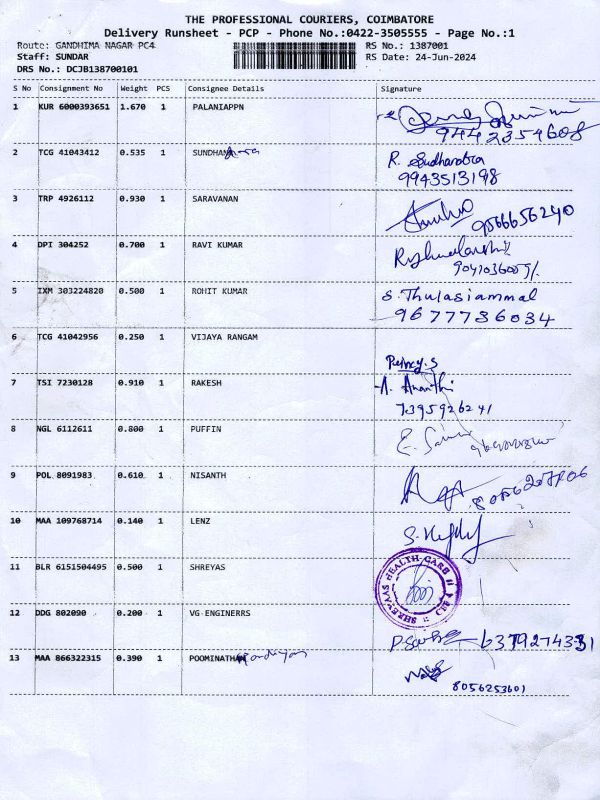 THE PROFESSIONAL COURIERS, COIMBATORE
Delivery Runsheet - PCP - Phone No.:0422-3505555 - Page No.:1
Route: GANDHIMA NAGAR PC4 RS No.: 1387001
Staff: SUNDAR RS Date: 24-Jun-2024
DRS No.: DCJB138700101
S No Consignment No Weight PCS Consignee Details Signature
1 KUR 6000393651 1.670 1 PALANIAPPN
9442354608
2 TCG 41043412 0.535 1 SUNDHAN R. Sudharatra
9943513198
3 TRP 4926112 0.930 1 SARAVANAN 9566656240
4 DPI 304252 0.700 1 RAVI KUMAR
5 IXM 303224820 0.500 1 ROHIT KUMAR S. Thulasiammal
9677736034
6 TCG 41042956 0.250 1 VIJAYA RANGAM
7 TSI 7230128 0.910 1 RAKESH A. Ananthi
7395926241
8 NGL 6112611 0.800 1 PUFFIN
9 POL 8091983 0.610 1 NISANTH
10 MAA 109768714 0.140 1 LENZ
11 BLR 6151504495 0.500 1 SHREYAS SHREYAAS HEALTH CARE
12 DDG 802090 0.200 1 VG ENGINERRS 6379274331
13 MAA 866322315 0.390 1 POOMINATHAN
8056253601